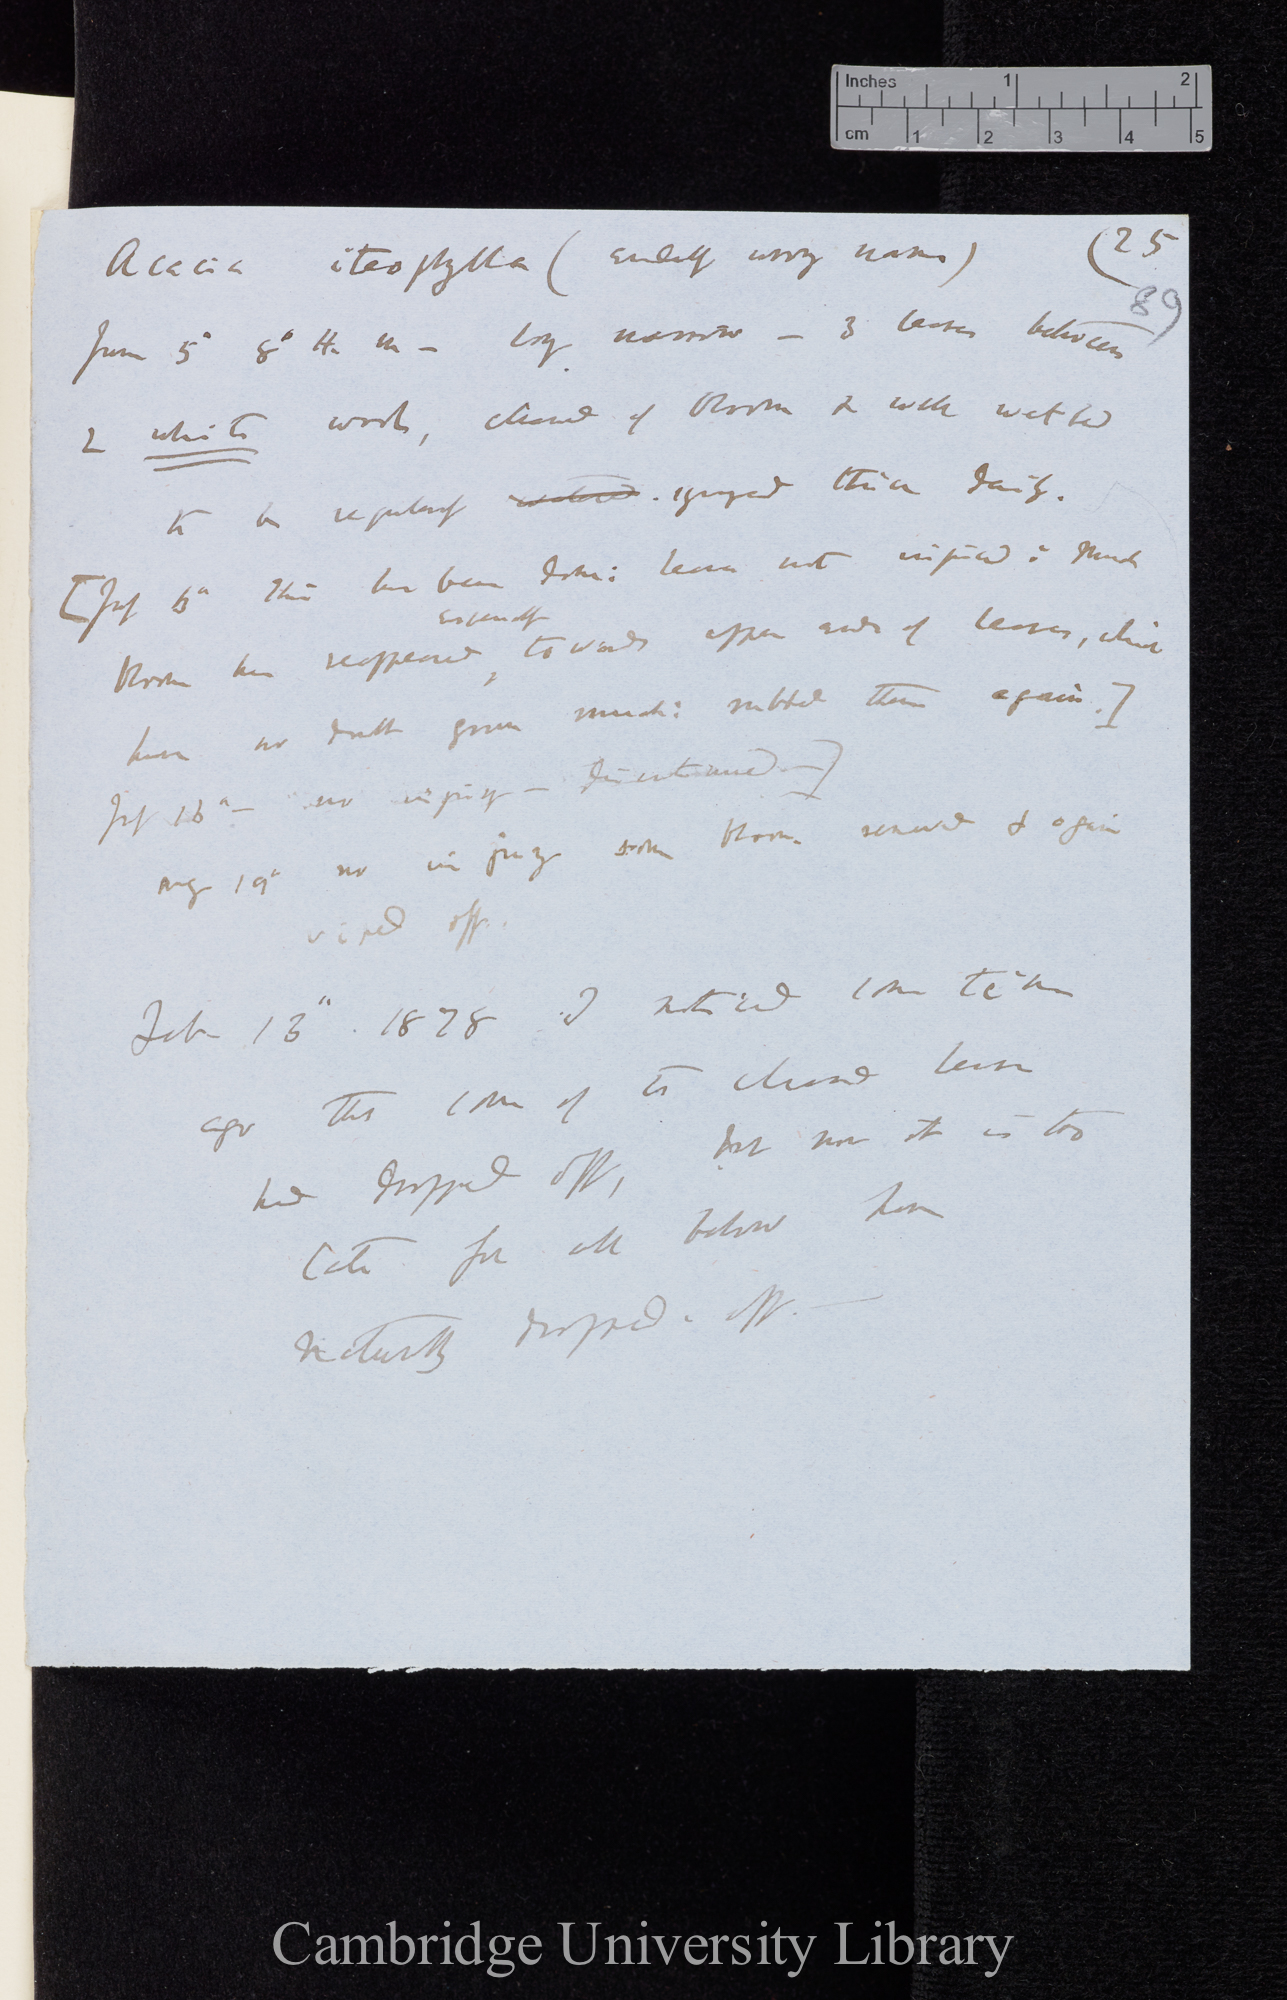 Inches 1 2
cm 1 2 3 4 5
Acacia iteophylla ( wrong name) (25
89
June 5th 8° H. M – long narrow – 3 leaves between
2 white wools, cleaned of bloom & well wetted
to be regularly watered syringed thrice daily.
[July 6th This has been done: leaves not injured: Much
especially
bloom has reappeared, towards upper ends of leaves, which
have no doubt grown much: rubbed them again.]
July 13th – no injury – Discontinued —]
Aug 19th no injury some bloom renewed & again
wiped off.
Feb 13th. 1878 I noticed some time
ago that some of the cleaned leaves
had dropped off, but now it is too
late for all below have
naturally dropped off. —
Cambridge University Library